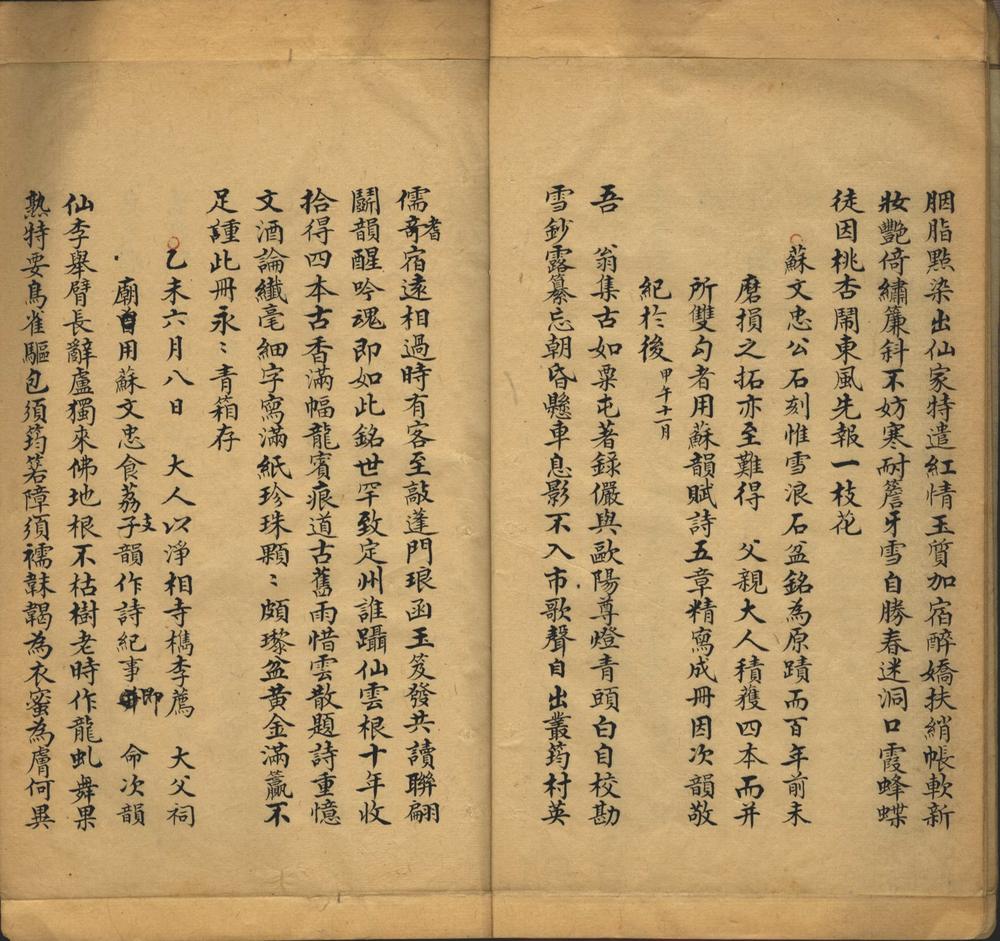 胭脂點染出仙家特遣紅情玉質加宿醉嬌扶綃帳軟新
妝艷倚繡簾斜不妨寒耐簷牙雪自勝春迷洞口霞蜂蝶
徒因桃杏鬧東風先報一枝花
蘇文忠公石刻惟雪浪石盆銘為原蹟而百年前未
磨損之拓亦至難得 父親大人積獲四本而并
所雙勾者用蘇韻賦詩五章精寫成冊因次韻敬
紀於後 甲午十一月
吾 翁集古如粟屯著錄儼與歐陽尊燈青頭白自校勘
雪鈔露纂忘朝昏懸車息影不入市歌聲自出叢筠村英
儒耆宿遠相過時有客至敲蓬門琅函玉笈發共讀聯翩
鬬韻醒吟魂即如此銘世罕致定州誰躡仙雲根十年收
拾得四本古香滿幅龍賓痕道古舊雨惜雲散題詩重憶
文酒論纖毫細字寫滿紙珍珠顆〻頗瓈盆黃金滿籯不
足諥此冊永〻青箱存
乙未六月八日 大人以淨相寺檇李薦 大父祠
廟用蘇文忠食荔支韻作詩紀事即 命次韻
仙李舉臂長辭盧獨來佛地根不枯樹老時作龍虬舞果
熟特要鳥雀驅包須筠箬障須襦韎韐為衣蜜為膚何異